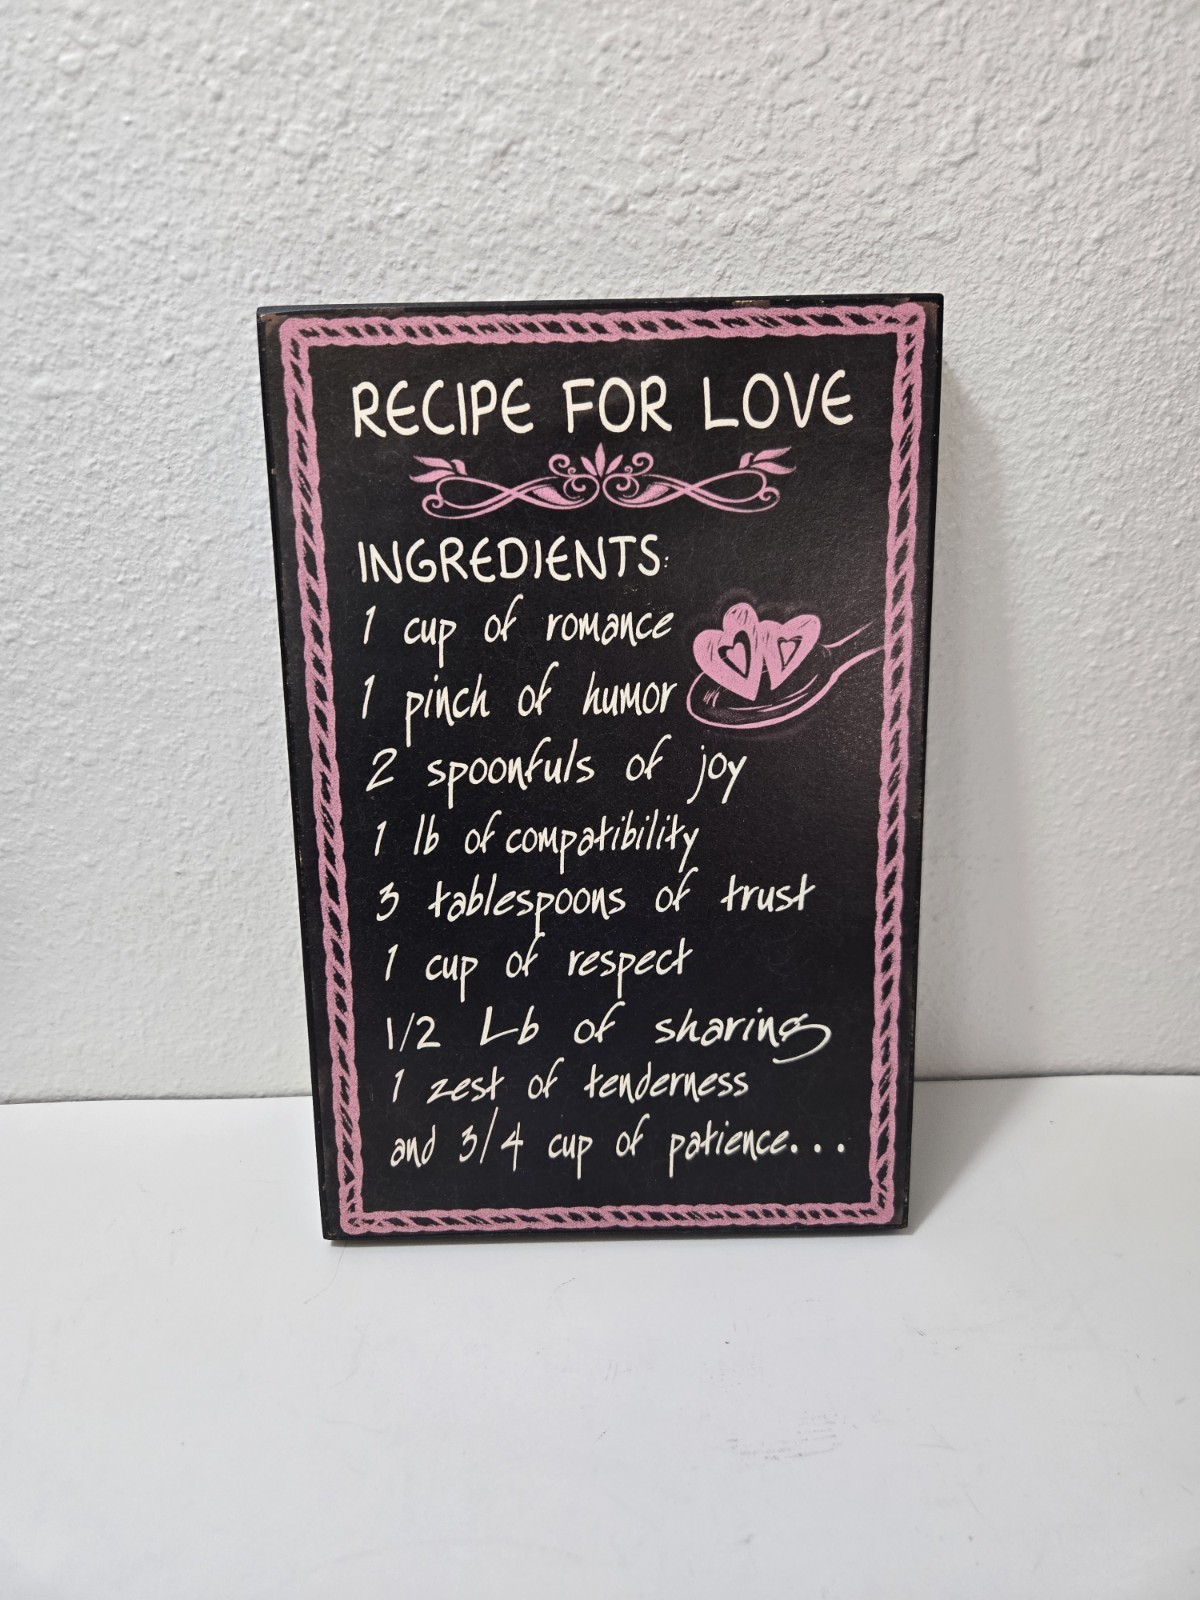 RECIPE FOR LOVE
INGREDIENTS:
1 cup of romance
1 pinch of humor
2 spoonfuls of joy
1 lb of compatibility
3 tablespoons of trust
1 cup of respect
1/2 Lb of sharing
1 zest of tenderness
and 3/4 cup of patience...